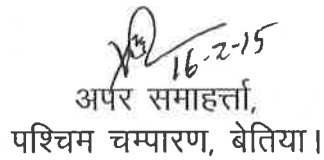 16-2-15
अपर समाहर्त्ता,
पश्चिम चम्पारण, बेतिया।